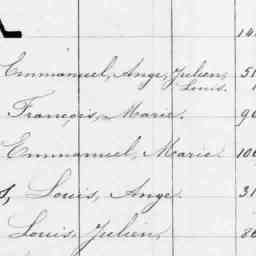 14
Emmanuel, Ange, Julien, 5
Louis.
François, Marie. 9
Emmanuel, Marie. 10
s, Louis, Ange. 31
Louis, Julien, 8